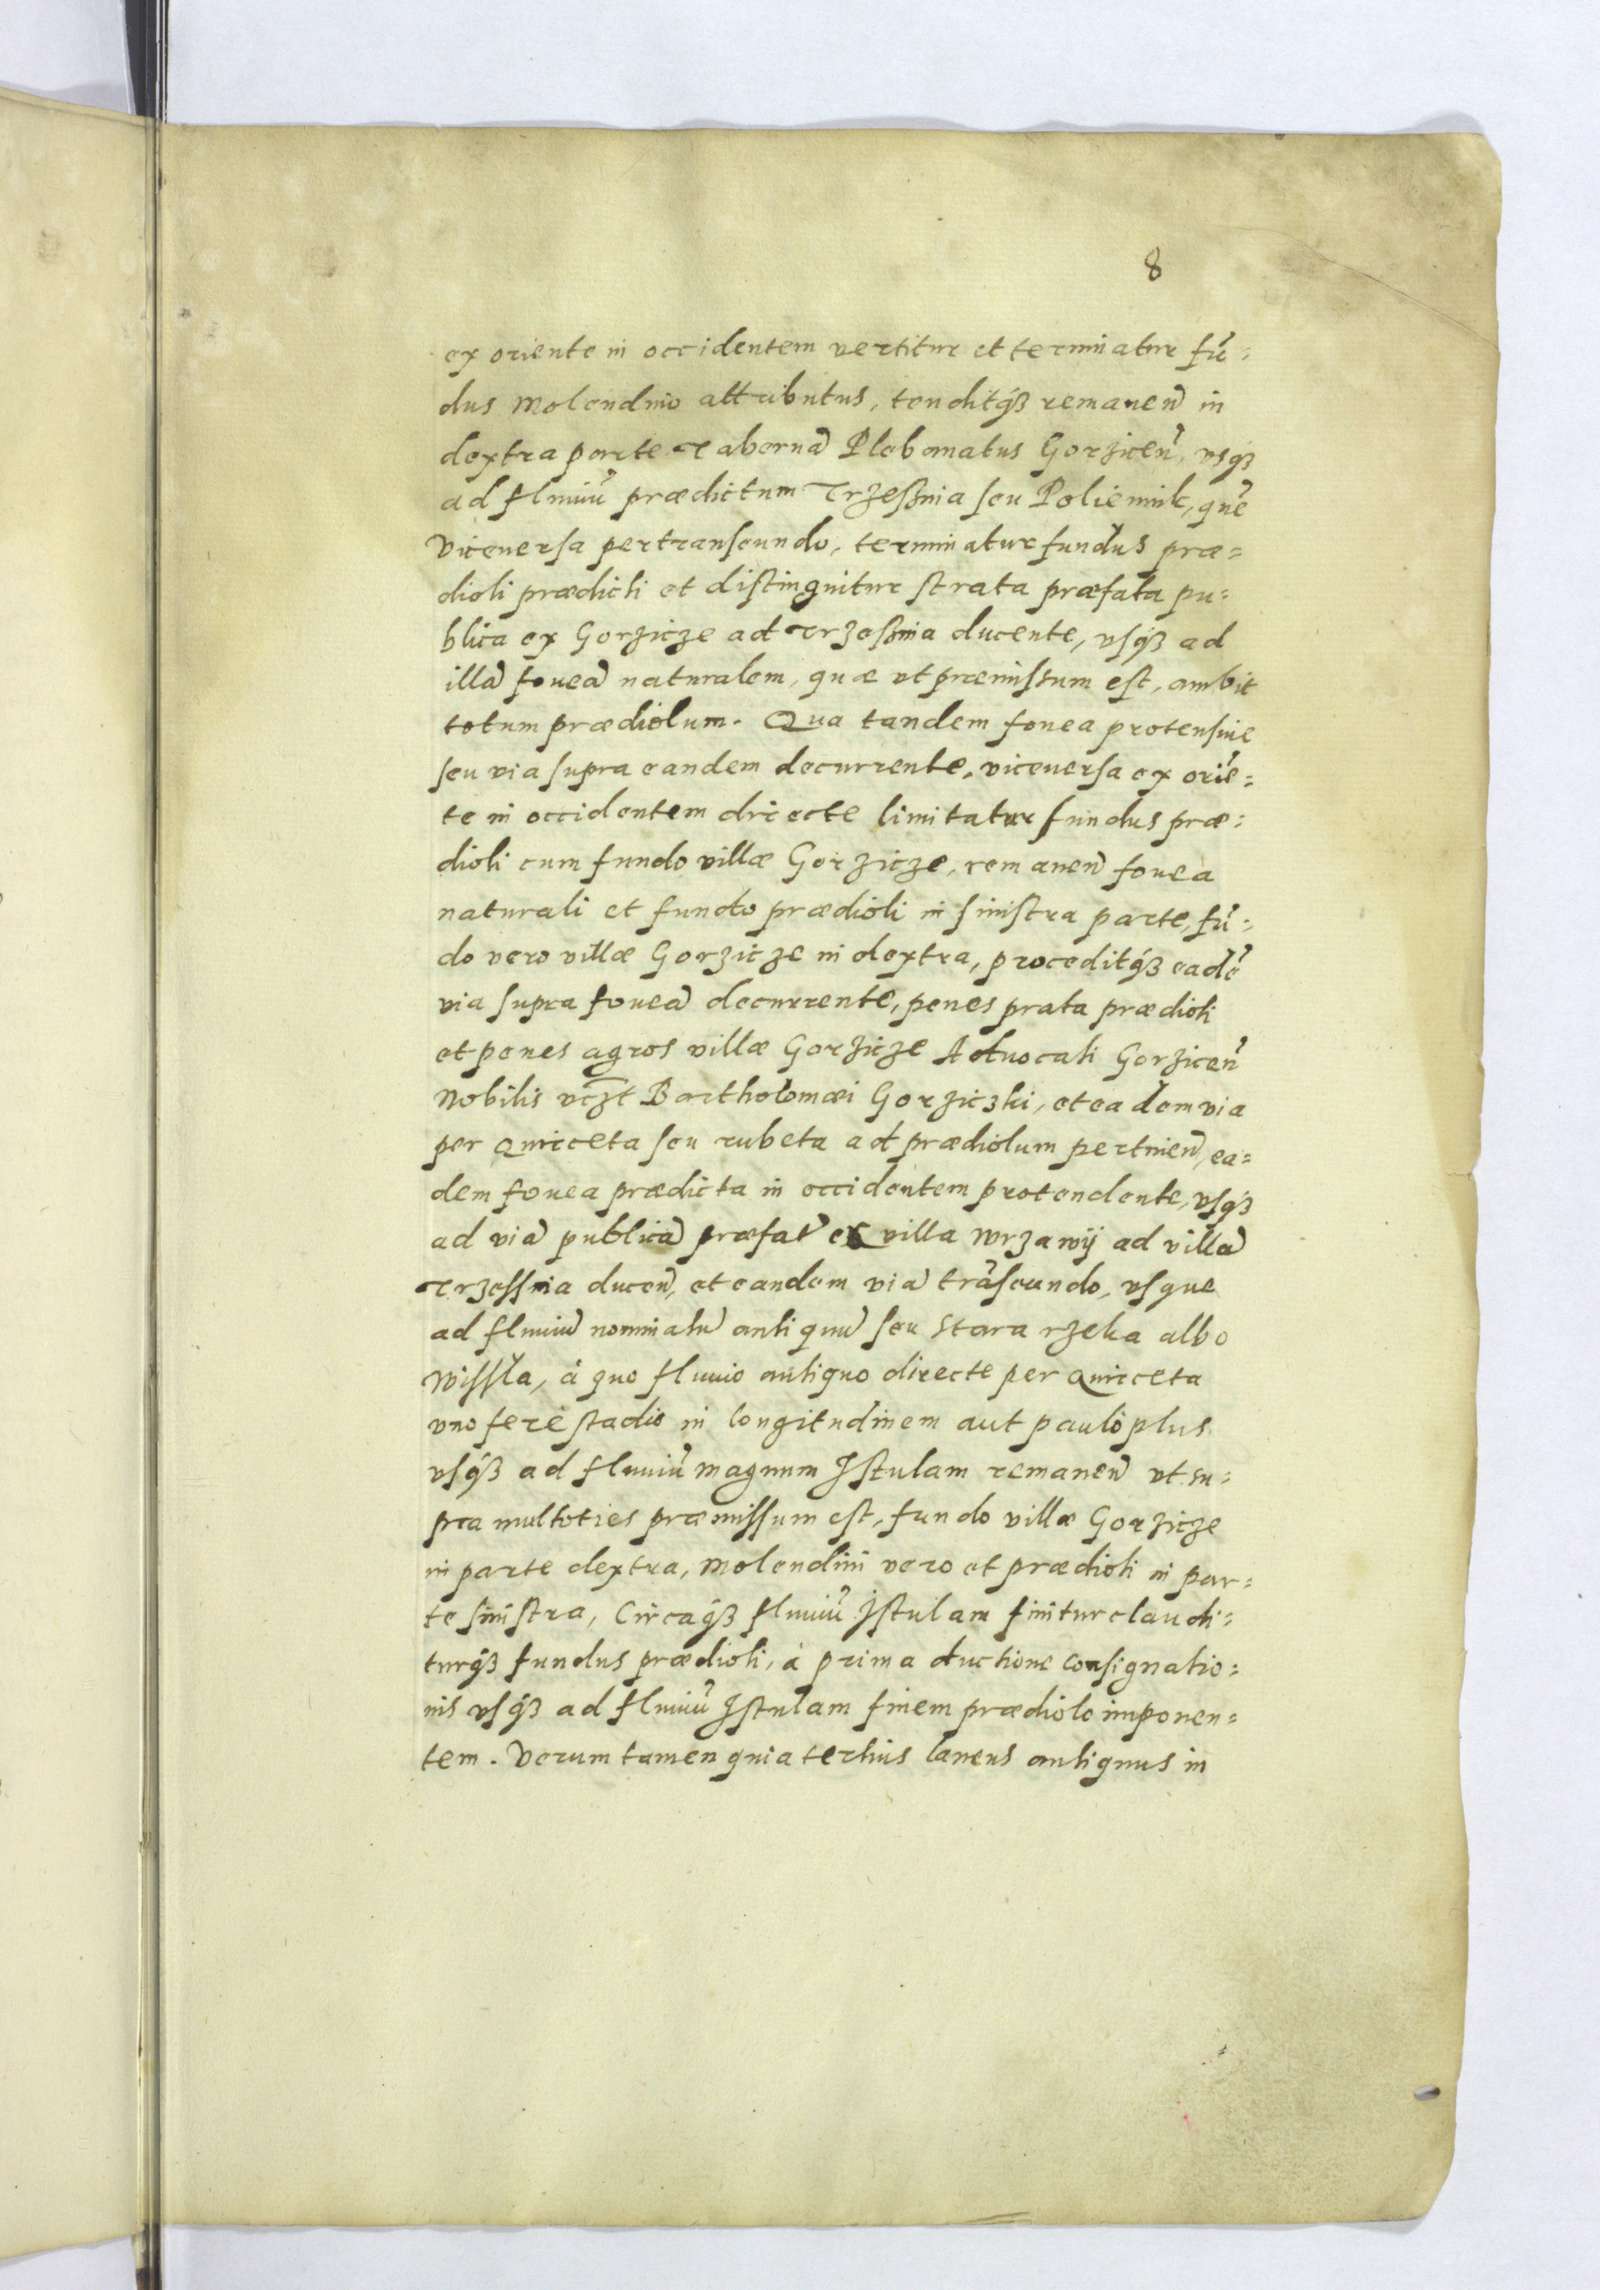 8
ex oriente in occidentem vertitur et terminatur fū=
dus Molendino attributus, tenditq́ꝫ remaneñ in
dextra parte Tabernã Plebanatus Gorziceñ, vsq́ꝫ
ad fluuiũ prædictum Trzeßnia seu Poliennik, quẽ
viceuersa pertranseundo, terminatur fundus præ=
dioli prædicti et distinguitur strata præfata pu=
blica ex Gorzicze ad Trzeßnia ducente, vsq́ꝫ ad
illã foueã naturalem, quæ vt præmissum est, ambit
totum prædiolum. Qua tandem fouea protensiue
seu via supra eandem decurrente, viceuersa ex oriẽ=
te in occidentem directe limitatur fundus præ=
dioli cum fundo villæ Gorzicze, remaneñ fouea
naturali et fundo prædioli in sinistra parte, fũ=
do vero villæ Gorzicze in dextra, proceditq́ꝫ eadẽ
via supra foueã decurrente, penes prata prædioli
et penes agros villæ Gorzicze Aduocati Gorziceñ
Nobilis vczt Bartholomæi Gorziczki, et eadem via
per Quirceta seu rubeta ad prædiolum pertineñ, ea=
dem fouea prædicta in occidentem protendente, vsq́ꝫ
ad viã publicã præfat̃ ex villa Wrzawij ad villã
Trzessnia duceñ, et eandem viã trãseundo, vsque
ad fluuiũ nominatũ antiquũ seu Stara rzeka albo
Wissla, à quo fluuio antiquo directe per Quirceta
vno ferè stadio in longitudinem aut paulò plus
vsq́ꝫ ad fluuiũ magnum Istulam remaneñ vt su=
pra multoties præmissum est, fundo villæ Gorzicze
in parte dextra, Molendini vero et prædioli in par=
te sinistra, Circaq́ꝫ fluuiũ Istulam finitur claudi=
turq́ꝫ fundus prædioli, à prima ductione consignatio=
nis vsq́ꝫ ad fluuiũ Istulam finem prædiolo imponen=
tem. Verum tamen quia tertius laneus antiquus in